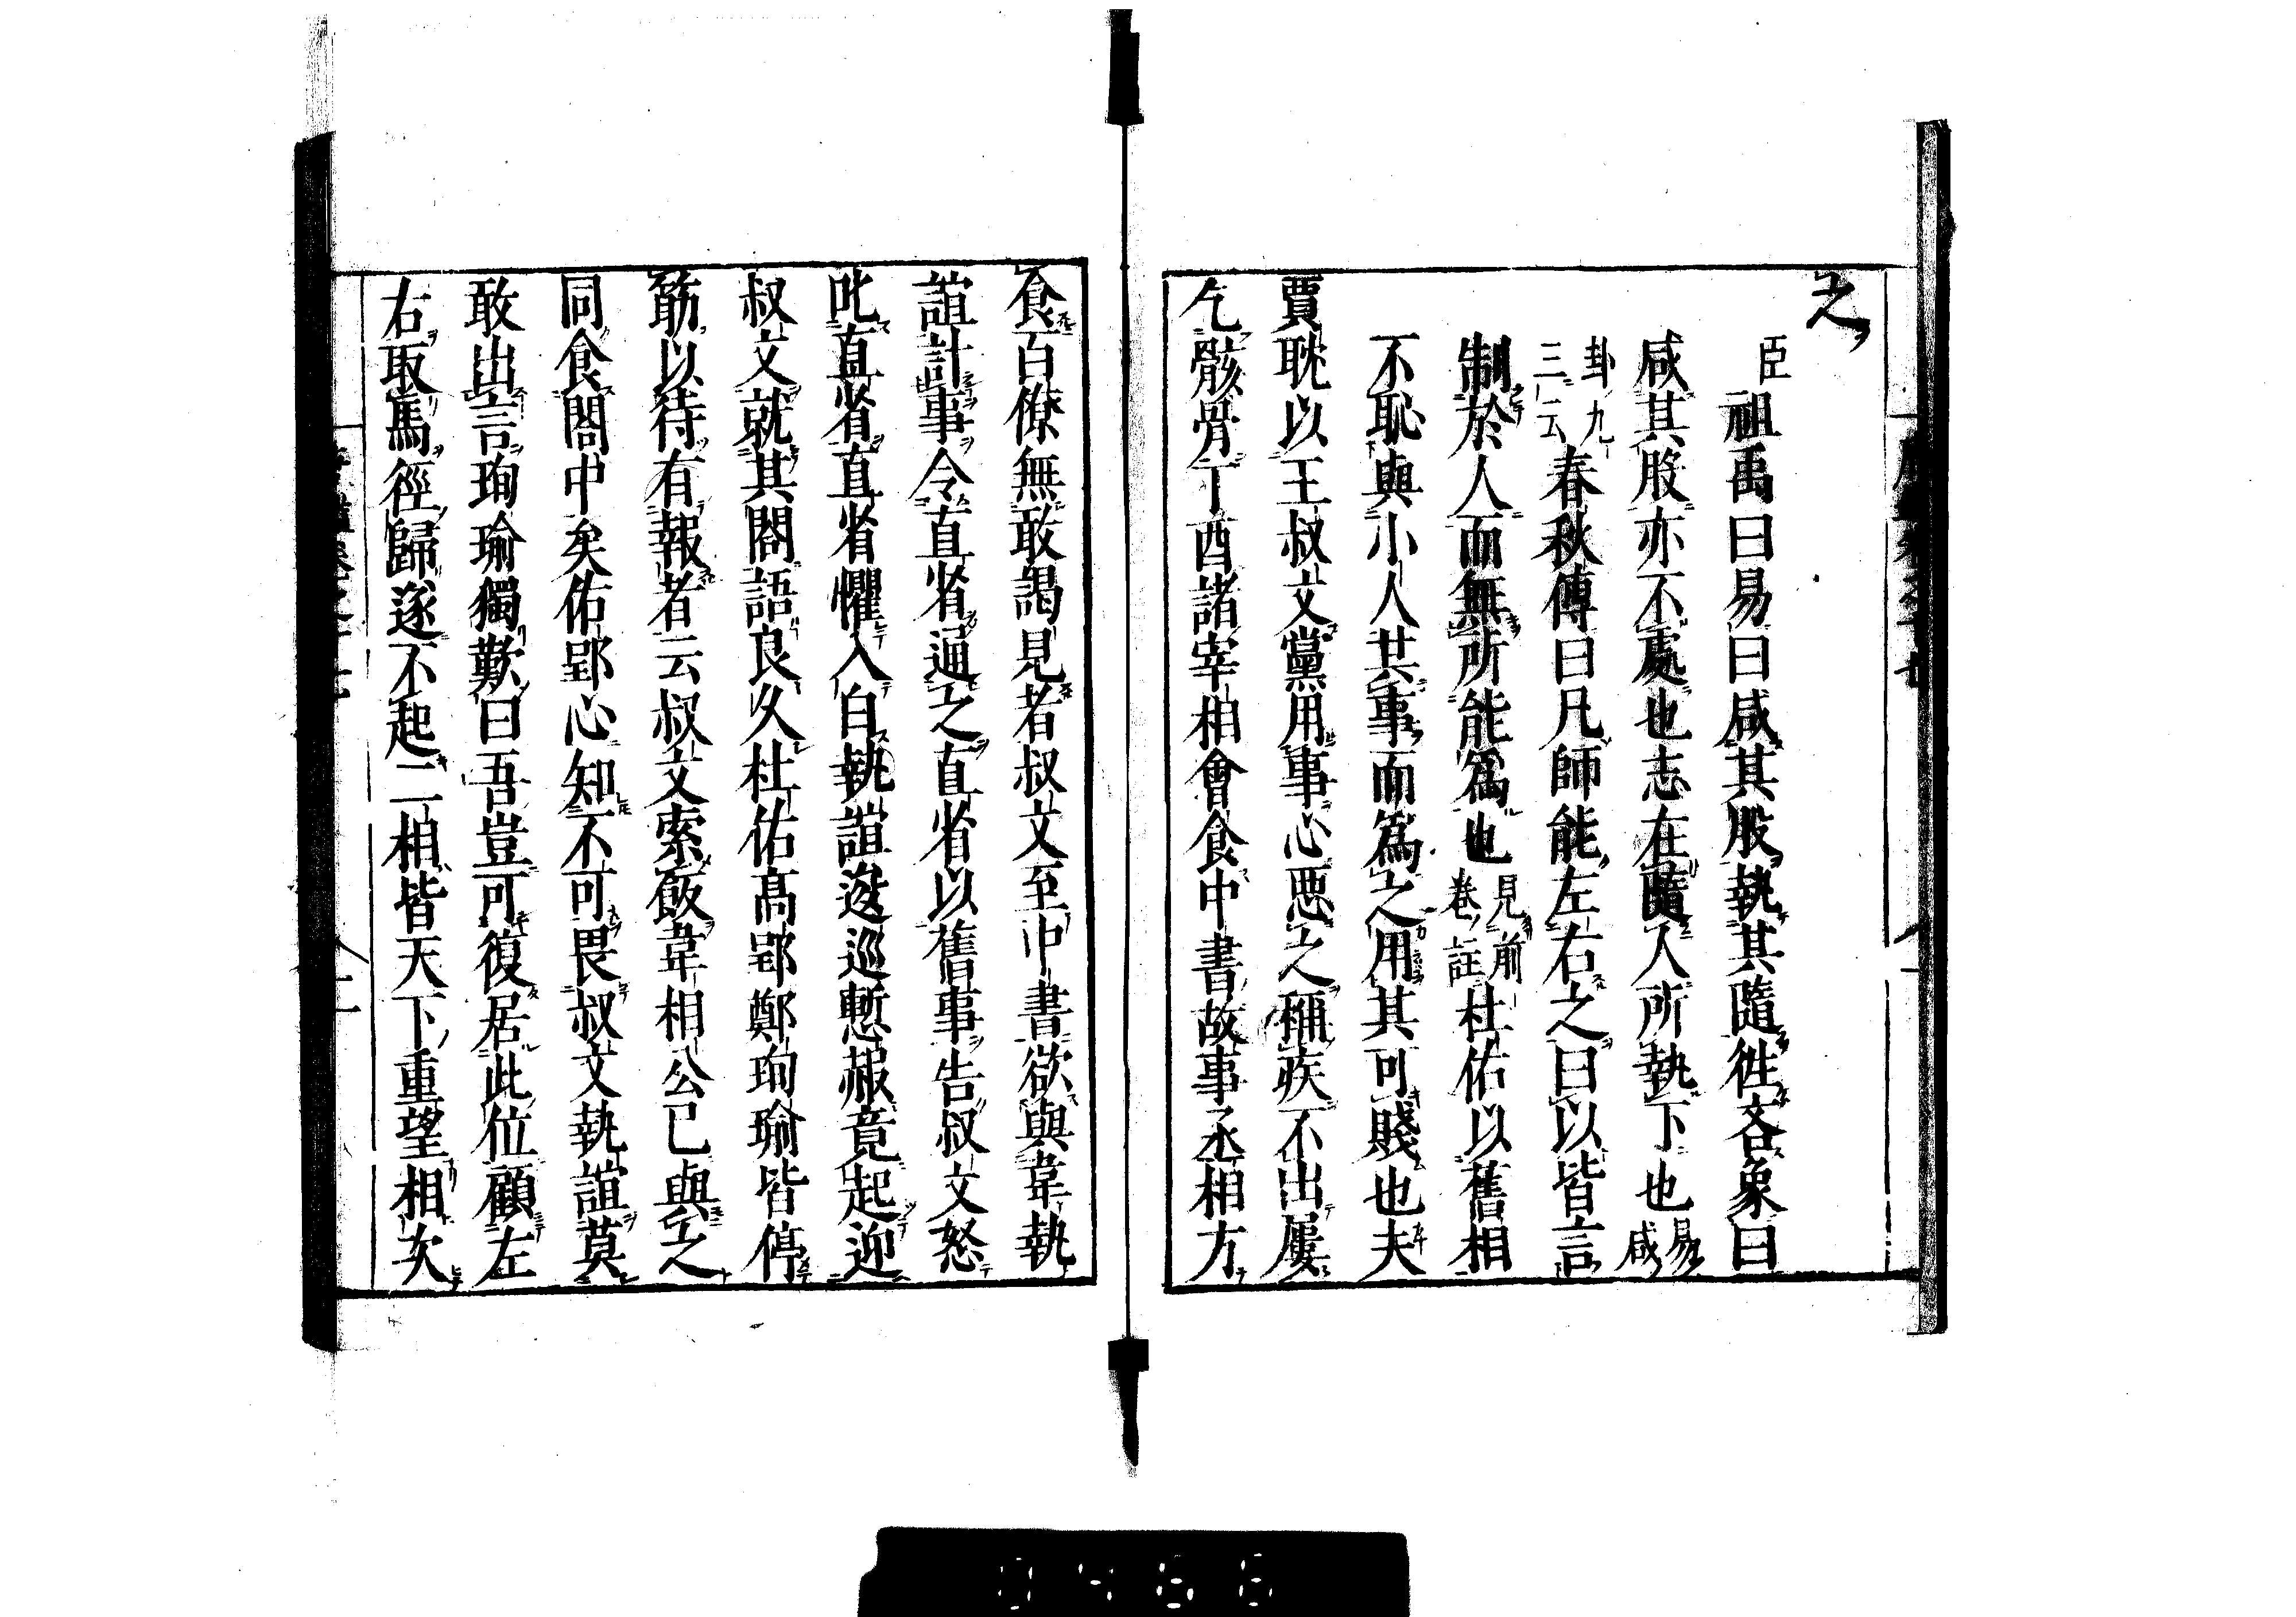 之
臣祖禹曰易曰咸其股執其隨徃吝象曰
咸其股亦不處也志在隨人所執下也易咸
卦九三云春秋傳曰凡師能左右之曰以皆言
制於人而無所能爲也見前卷註杜佑以舊相
不恥與小人共事而爲之用其可賤也夫
賈耽以王叔文黨用事心惡之稱疾不出屢
乞骸骨丁酉諸宰相會食中書故事丞相方
食百僚無敢謁見者叔文至中書欲與韋執
誼計事令直省通之直省以舊事告叔文怒
叱直省直省懼入白執誼逡巡慙赧竟起迎
叔文就其閤語良久杜佑高郢鄭珣瑜皆停
筯以待有報者云叔文索飯韋相公已與之
同食閤中矣佑郢心知不可畏叔文執誼莫
敢出言珣瑜獨歎曰吾豈可復居此位顧左
右取馬徑歸遂不起二相皆天下重望相次